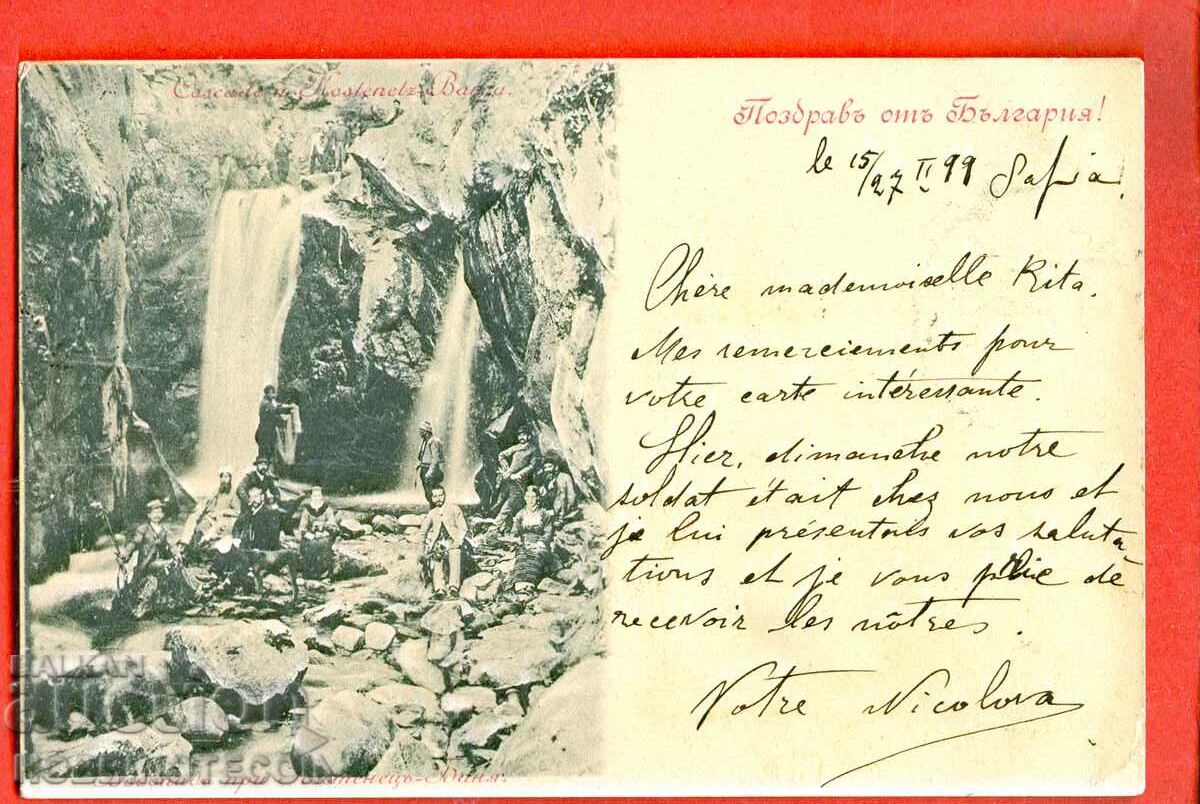 Cascade à Kostenetz-Bania.
Поздравъ отъ България!
le 15/27 II 99 Safia.
Chère mademoiselle Rita.
Mes remerciements pour
votre carte intéressante.
Hier, dimanche notre
soldat était chez nous et
je lui présentais vos saluta-
tions et je vous plie de
recevoir les nôtres.
Votre Nicolova
BALKAN
auction
при Костенецъ-Баня.